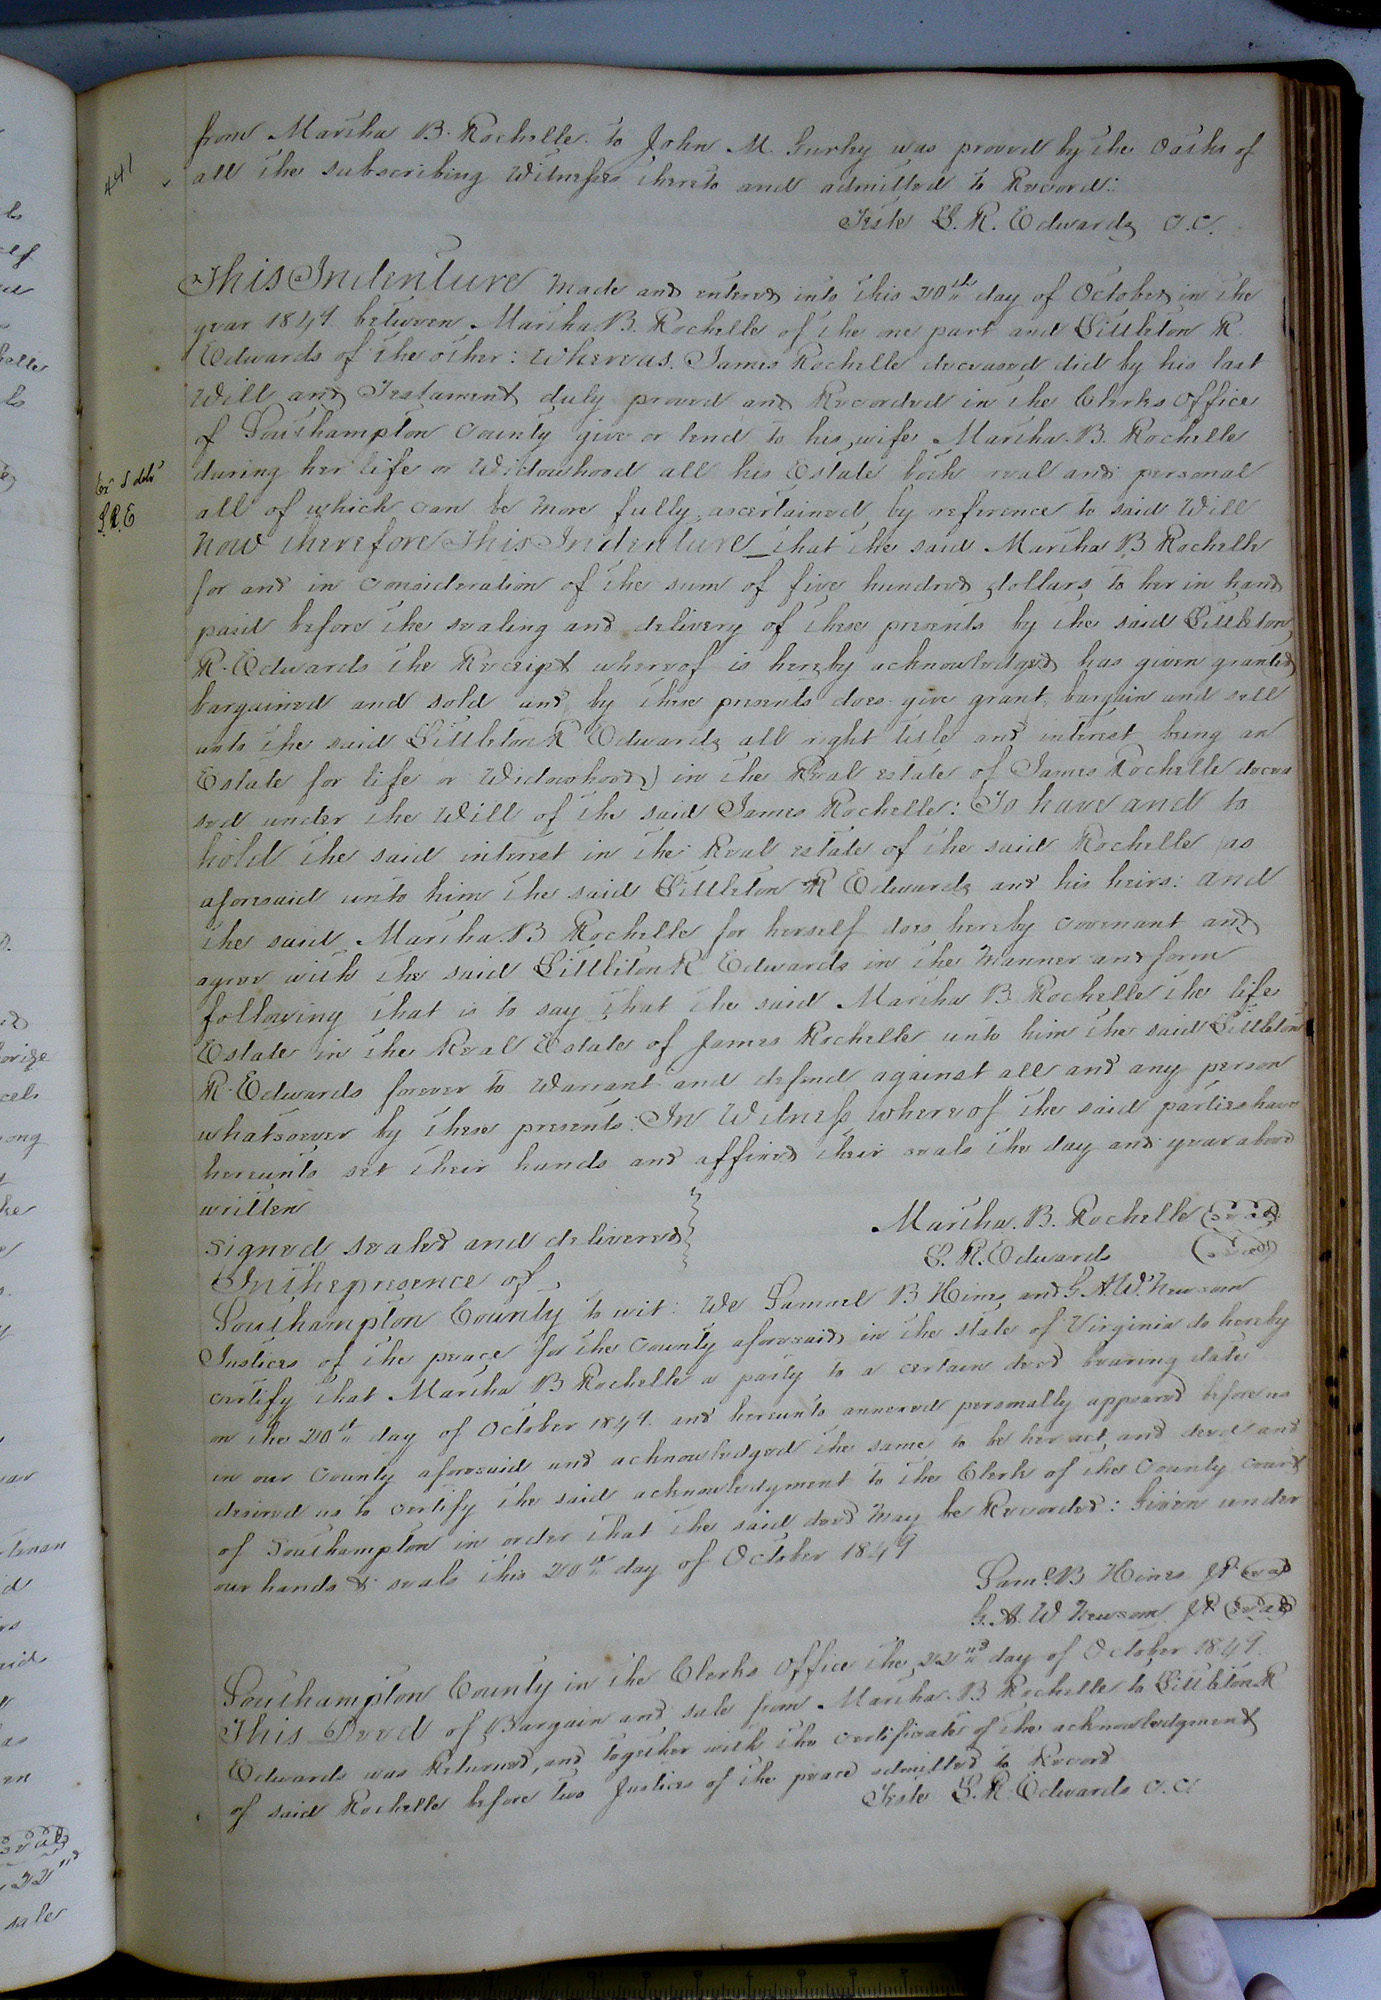 441
from Martha B. Rochelle to John M. Gurley was proved by the Oaths of
all the subscribing Witnesses thereto and admitted to Record:
Teste L. R. Edwards C.C.
This Indenture Made and entered into this 20th day of October in the
year 1849. between Martha B. Rochelle of the one part and Littleton R.
Edwards of the other: Whereas. James Rochelle deceased did by his last
Will and Testament duly proved and Recorded in the Clerks Office
of Southampton County give or lend to his wife Martha. B. Rochelle
during her life or Widowhood all his Estate both real and personal
all of which can be more fully ascertained by reference to said Will
Now therefore This Indenture that the said Martha B Rochelle
for and in consideration of the sum of five hundred dollars to her in hand
paid before the sealing and delivery of these presents by the said Littleton
R. Edwards the Receipt whereof is hereby acknowledged has given granted
bargained and sold and by these presents does give grant, bargain and sell
unto the said Littleton R Edwards all right title and interest being an
Estate for life or Widowhood) in the Real estate of James Rochelle decea
sed under the Will of the said James Rochelle: To have and to
hold the said interest in the Real estate of the said Rochelle as
aforesaid unto him the said Littleton R Edwards and his heirs: and
the said Martha. B Rochelle for herself does hereby covenant and
agree with the said Littleton R Edwards in the Manner and form
following that is to say that the said Martha B Rochelle the life
Estate in the Real Estate of James Rochelle unto him the said Littleton
R. Edwards forever to Warrant and defend against all and any person
whatsoever by these presents. In Witness whereof the said parties have
hereunto set their hands and affixed their seals the day and year above
written
Martha. B. Rochelle (Seal)
signed sealed and delivered
L. R. Edwards (Seal)
In the presence of
Southampton County to wit: We Samuel B Hines and G. A. W. Newsom
Justices of the peace for the County aforesaid in the state of Virginia do hereby
certify that Martha B Rochelle a party to a certain deed bearing date
on the 20th day of October 1849. and hereunto annexed personally appeared before us
in our County aforesaid and acknowledged the same to be her act and deed and
desired us to certify the said acknowledgment to the Clerk of the County court
of Southampton in order that the said deed may be Recorded: Given under
our hands & seals this 20th day of October 1849
Saml. B Hines JP (Seal)
G. A. W Newsom JP (Seal)
Southampton County in the Clerks Office the 22nd day of October 1849.
This Deed of Bargain and sale from Martha. B Rochelle to Littleton R
Edwards was Returned, and together with the certificate of the acknowledgment
of said Rochelle before two Justices of the peace admitted to Record
Teste L. R. Edwards C. C.